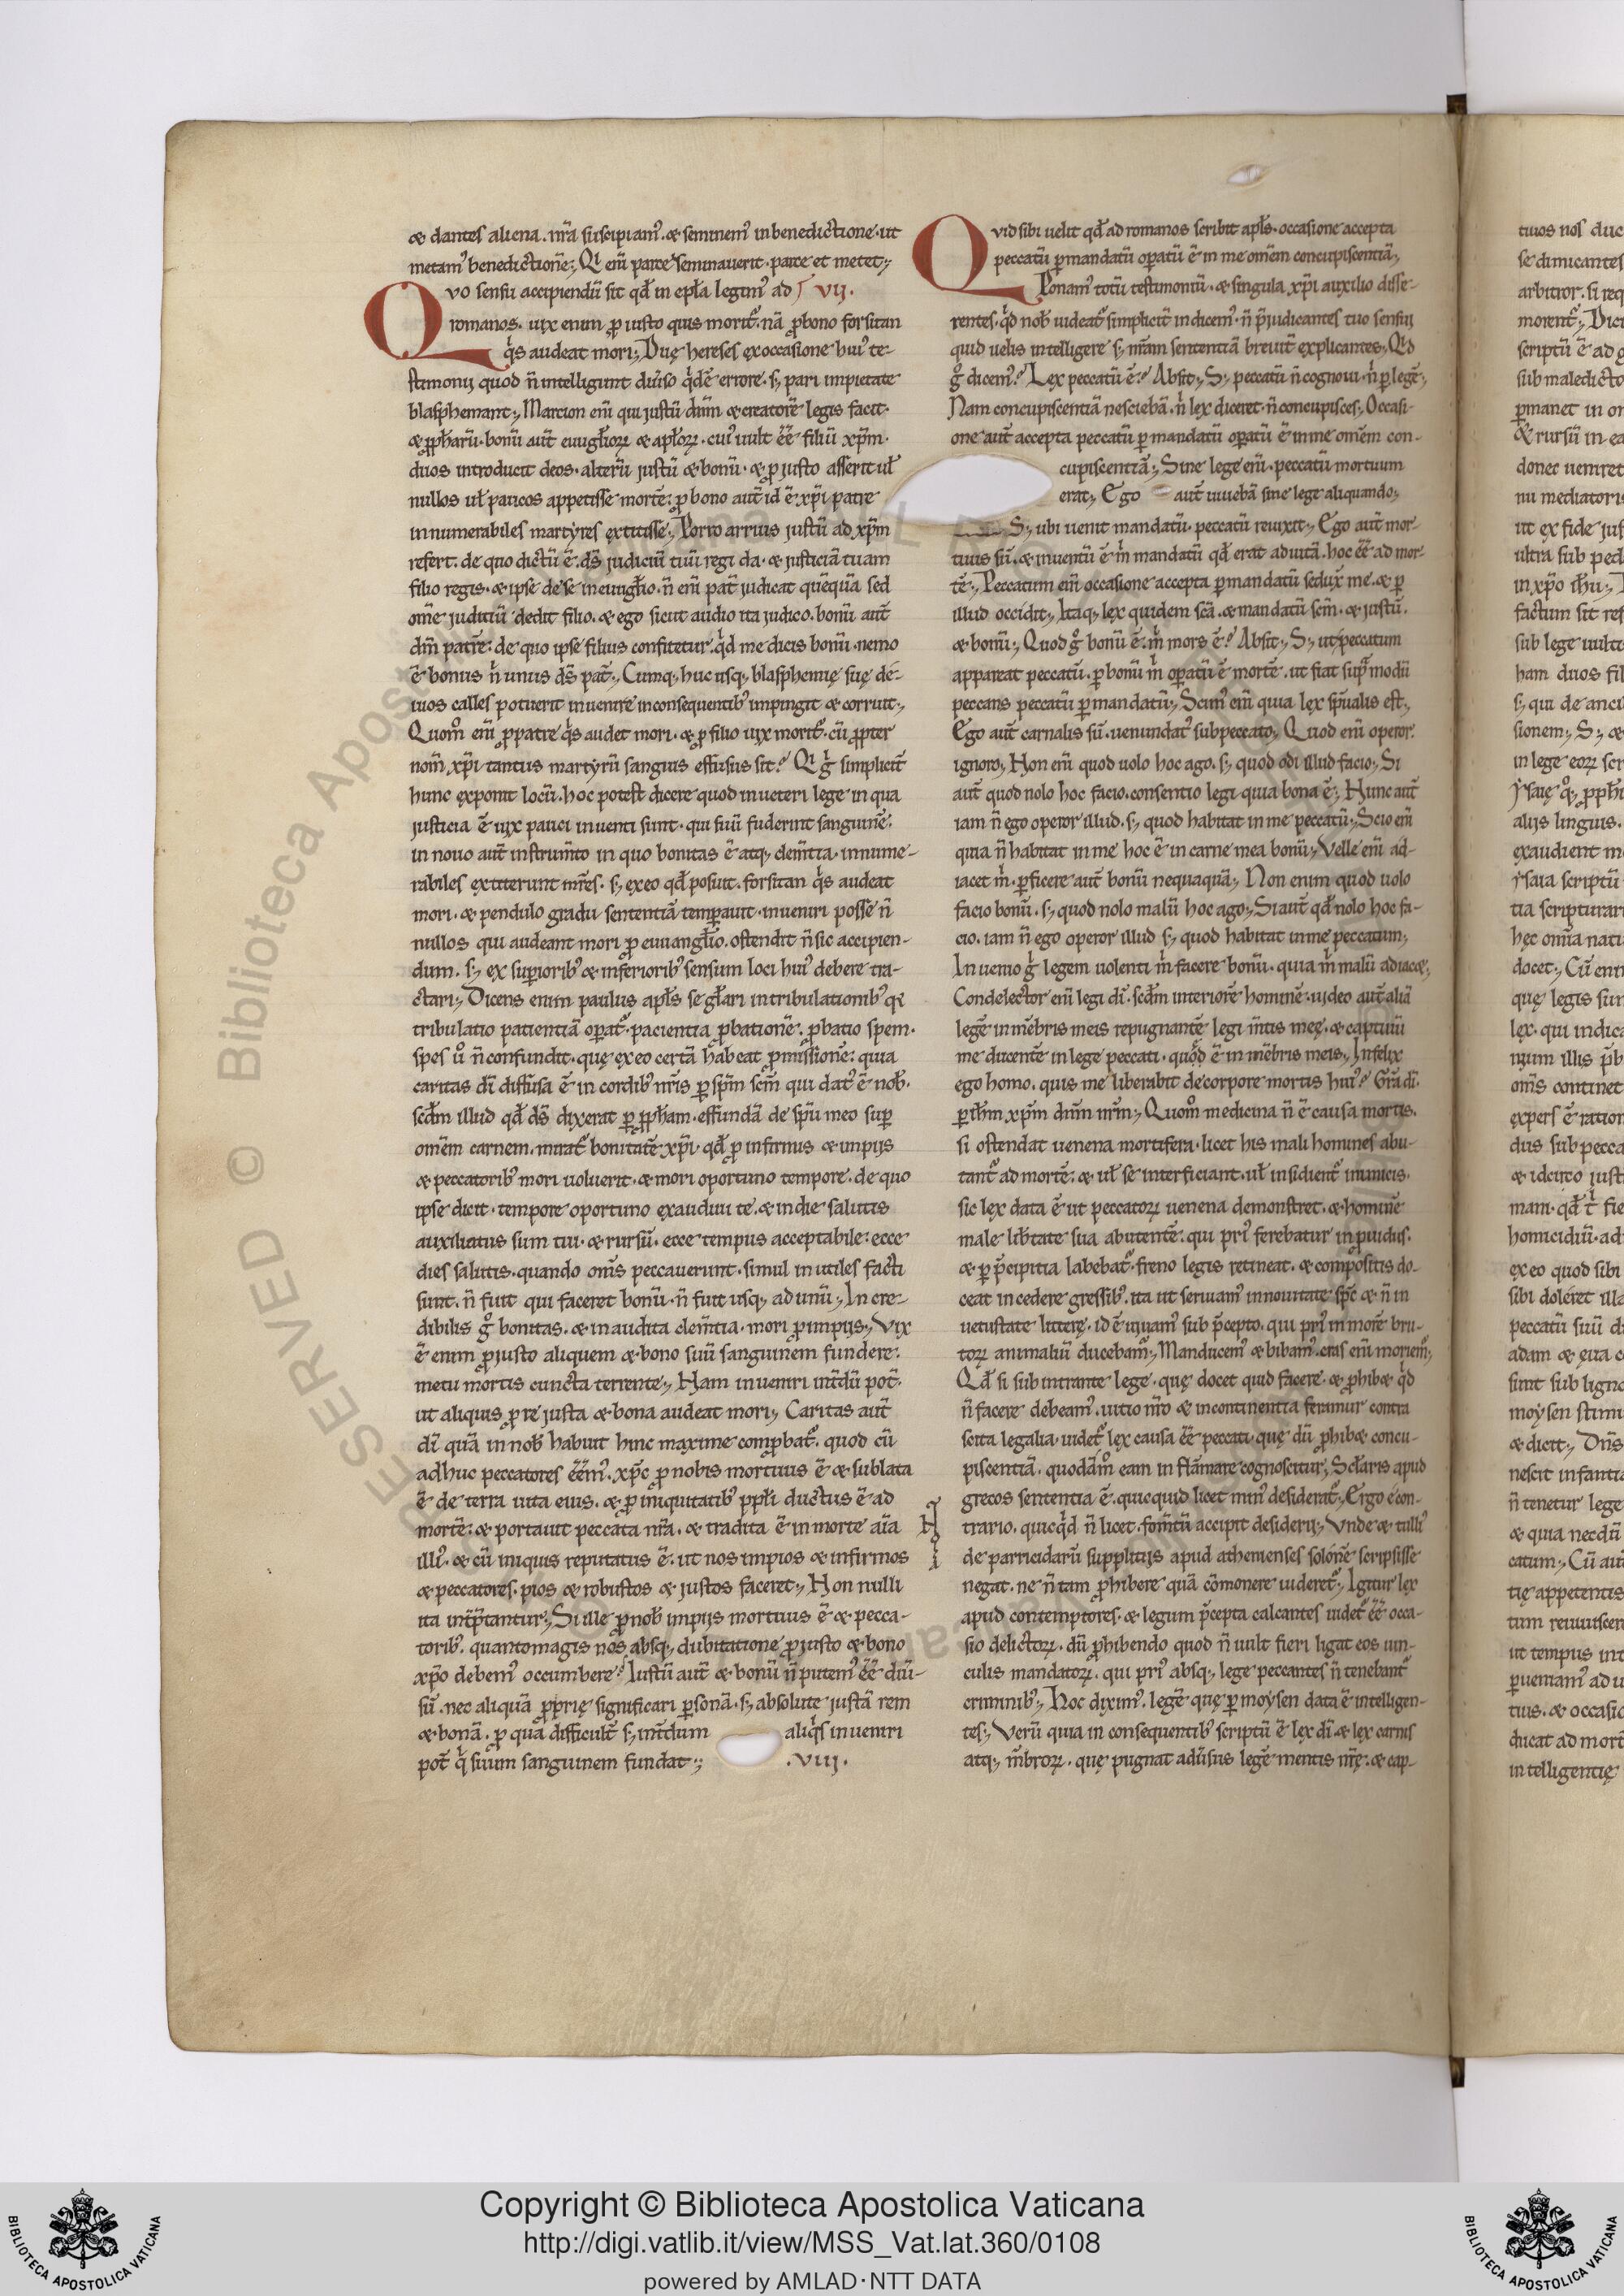 & dantes aliena. nr̄a suscipiam᷒. & seminem᷒ in benedictione. ut
metam᷒ benedictionē;, Q̇ eni᷒ parce seminauerit. parce et metet;,
Quo sensu accipiendū sit qđ in epl̄a legim᷒ ad vij.
romanos. uix enim ꝓ iusto quis morit᷒. nā ꝓ bono forsitan
q̇s audeat mori;, Duę hereses ex occasione hui᷒ te-
stimonij quod n̄ intelligunt diu̾so q̇dē errore. s; pari impietate
blasphemant;, Marcion eni᷒ qui justū dn̄m & creatorē legis facit.
& ꝓph̄arū. bonū aut̄ euuglꝉioꝝ & apl̄oꝝ. cui᷒ uult ēē filiū xp̄m.
duos introducit deos. alterū justū & bonū. & ꝓ justo asserit uł
nullos uł paucos appetisse mortē; ꝓ bono aut̄ id ē xp̄i patre
innumerabiles martyres extitisse;, Porro arrius justū ad xp̄m
refert. de quo dictū ē. ds̄ judiciū tuū regi da. & justiciā tuam
filio regis. & ipse de se in euuglꝉio. n̄ eni᷒ pat̄ judicat quēquā sed
om̄e juditiū dedit filio. & ego sicut audio ita judico. bonū aut̄
dm̄ patrē. de quo ipse filius confitetur. q̇d me dicis bonū. nemo
ē bonus n̄ unus ds̄ pat̄;, Cumq; huc usq; blasphemię suę de-
uios calles potuerit inuenire in consequentib᷒ impingit & corruit;,
Quom̊ eni᷒ ꝓ patre q̇s audet mori. & ꝓ filio uix morit᷒. cū ꝓpter
nom̄ xp̄i tantus martyrū sanguis effusus sit? Q̇ g̊ simplicit̄
hunc exponit locū. hoc potest dicere quod in ueteri lege in qua
justicia ē uix pauci inuenti sunt. qui suū fuderint sanguinē.
in nouo aut̄ instrum̄to in quo bonitas ē atq; clem̄tia. innume-
rabiles extiterunt mr̄es. s; ex eo qđ posuit. forsitan q̇s audeat
mori. & pendulo gradu sententiā temꝑauit. inueniri posse n̄
nullos qui audeant mori ꝓ euuanglꝉio. ostendit n̄ sic accipien-
dum. s; ex suꝑiorib᷒ & inferiorib᷒ sensum loci hui᷒ debere tra-
ctari;, Dicens enim paulus apl̄s se glꝉari in tribulationib᷒ qꝛ
tribulatio patientiā oꝑat᷒. pacientia ꝓbationē. ꝓbatio spem.
spes ů n̄ confundit. quę ex eo certā habeat ꝓmissionē; quia
caritas dī diffusa ē in cordib᷒ nr̄is ꝑ sp̄m scm̄ qui dat᷒ ē nob̄.
scđm illud qđ ds̄ dixerat ꝑ ꝓph̄am. effundā de sp̄u meo suꝑ
omēm carnem. mirat᷒ bonitatē xp̄i. qđ ꝓ infirmis & impijs
& peccatorib᷒ mori uoluerit. & mori oportuno tempore. de quo
ipse dicit. tempore oportuno exaudiui te. & in die salutis
auxiliatus sum tui. & rursū. ecce tempus acceptabile: ecce
dies salutis. quando om̄s peccauerunt. simul inutiles facti
sunt. n̄ fuit qui faceret bonū. n̄ fuit usq; ad unū;, Incre-
dibilis g̊ bonitas. & inaudita clem̄tia. mori ꝓ impijs;, Vix
ē enim ꝓ justo aliquem & bono suū sanguinem fundere.
metu mortis cuncta terrente;, Nam inueniri int̄dū pot̄.
ut aliquis ꝓ re justa & bona audeat mori;, Caritas aut̄
dī quā in nob̄ habuit hinc maxime comꝓbat᷒. quod cū
adhuc peccatores eēm᷒. xp̄c ꝓ nobis mortuus ē & sublata
ē de terra uita eius. & ꝓ iniquitatib᷒ ppłi ductus ē ad
mortē: & portauit peccata nr̄a. & tradita ē in morte aīa
illi᷒. & cū iniquis reputatus ē. ut nos impios & infirmos
& peccatores. pios & robustos & justos faceret;, Non nulli
ita int̄p̄tantur;, Si ille ꝓ nob̄ impijs mortuus ē & pecca-
torib᷒. quantomagis nos absq; dubitatione ꝓ justo & bono
xp̄o debem᷒ occumbere? Iustū aut̄ & bonū n̄ putem᷒ ēē diu̾-
sū. nec aliquā ꝓprię significari ꝑsonā. s; absolute justā rem
& bonā. ꝓ qua difficult̄ s; int̄dum aliq̇s inueniri
pot̄ q̇ suum sanguinem fundat;, .viij.
Quid sibi uelit qđ ad romanos scribit apl̄s. occasione accepta
peccatū ꝑ mandatū oꝑatū ē in me omēm concupiscentiā;,
Ponam᷒ totū testimoniū. & singula xp̄i auxilio disse-
rentes. q̇d nob̄ uideat᷒ simplicit̄ indicem᷒. n̄ p̄judicantes tuo sensui
quid uelis intelligere s; nr̄am sententiā breuit̄ explicantes;, Q̇d
g̊ dicem᷒? Lex peccatū ē? Absit;, S; peccatū n̄ cognoui. n̄ ꝑ legē;,
Nam concupiscentiā nesciebā. n̄ lex diceret. n̄ concupisces;, Occasi-
one aut̄ accepta peccatū ꝑ mandatū oꝑatū ē in me omēm con-
cupiscentiā;, Sine lege eni᷒. peccatū mortuum
erat;, Ego aut̄ uiuebā sine lege aliquando;,
S; ubi uenit mandatū. peccatū reuixit;, Ego aut̄ mor-
tuus sū. & inuentū ē m̊ mandatū qđ erat ad uitā. hoc ēē ad mor-
tē;, Peccatum eni᷒ occasione accepta ꝑ mandatū sedux̄ me. & ꝑ
illud occidit;, Itaq; lex quidem scā. & mandatū scm̄. & justū.
& bonū;, Quod g̊ bonū ē. m̊ mors ē? Absit;, S; ut peccatum
appareat peccatū. ꝑ bonū m̊ oꝑatū ē mortē. ut fiat sup̄ modū
peccans peccatū ꝑ mandatū;, Scim᷒ eni᷒ quia lex sp̄ualis est;,
Ego aut̄ carnalis sū. uenundat᷒ sub peccato;, Quod eni᷒ operor
ignoro;, Non eni᷒ quod uolo hoc ago. s; quod odi illud facio;, Si
aut̄ quod nolo hoc facio. consentio legi quia bona ē;, Nunc aut̄
iam n̄ ego operor illud. s; quod habitat in me peccatū;, Scio eni᷒
quia n̄ habitat in me hoc ē in carne mea bonū;, Velle eni᷒ ad-
iacet m̊. ꝑficere aut̄ bonū nequaquā;, Non enim quod uolo
facio bonū. s; quod nolo malū hoc ago;, Si aut̄ qđ nolo hoc fa-
cio. iam n̄ ego operor illud s; quod habitat in me peccatum;,
Inuenio g̊ legem uolenti m̊ facere bonū. quia m̊ malū adiac&;,
Condelector eni᷒ legi dī. scđm interiorē hominē. uideo aut̄ aliā
legē in mēbris meis repugnantē legi m̄tis meę. & captiuū
me ducentē in lege peccati. quod ē in mēbris meis;, Infelix
ego homo. quis me liberabit de corpore mortis hui᷒? Gr̄a dī.
ꝑ ih̄m xp̄m dnm̄ nr̄m;, Quom̊ medicina n̄ ē causa mortis.
si ostendat uenena mortifera. licet his mali homines abu-
tant᷒ ad mortē: & uł se interficiant. uł insidient᷒ inimicis.
sic lex data ē ut peccatoꝝ uenena demonstret. & hominē
male lib̄tate sua abutentē. qui pri᷒ ferebatur inꝓuidus.
& ꝑ p̄cipitia labebat᷒. freno legis retineat. & compositis do-
ceat incedere gressib᷒. ita ut seruiam᷒ in nouitate sp̄c & n̄ in
uetustate litterę. id ē uiuam᷒ sub p̄cepto. qui pri᷒ in morē bru-
toꝝ animaliū ducebam᷒;, Manducem᷒ & bibam᷒. cras eni᷒ moriem᷒;,
Qđ si subintrante lege. quę docet quid facere. & ꝓhib& q̇d
n̄ facere debeam᷒. uitio nr̄o & incontinentia feramur contra
scita legalia. uidet᷒ lex causa ēē peccati. quę dū ꝓhib& concu-
piscentiā. quodām̊ eam inflāmare cognoscitur;, Sclꝉaris apud
grecos sententia ē. quicquid licet min᷒ desiderat᷒;, Ergo e con-
trario. quicq̇d n̄ licet. fom̄tū accipit desiderij;, Vnde & tulli᷒
de parricidarū supplitijs apud athenienses solonē scripsisse
negat. ne n̄ tam ꝓhibere quā cōmonere uideret᷒;, Igitur lex
apud contemptores. & legum p̄cepta calcantes uidet᷒ ēē occa-
sio delictoꝝ. dū ꝓhibendo quod n̄ uult fieri ligat eos uin-
culis mandatoꝝ. qui pri᷒ absq; lege peccantes n̄ tenebant᷒
criminib᷒;, Hoc dixim᷒. legē quę ꝑ moysen data ē intelligen-
tes;, Verū quia in consequentib᷒ scriptū ē lex dī & lex carnis
atq; m̄broꝝ. quę pugnat adu̾sus legē mentis nr̄ę. & cap-
Copyright © Biblioteca Apostolica Vaticana
http://digi.vatlib.it/view/MSS_Vat.lat.360/0108
powered by AMLAD·NTT DATA
BIBLIOTECA APOSTOLICA VATICANA
BIBLIOTECA APOSTOLICA VATICANA